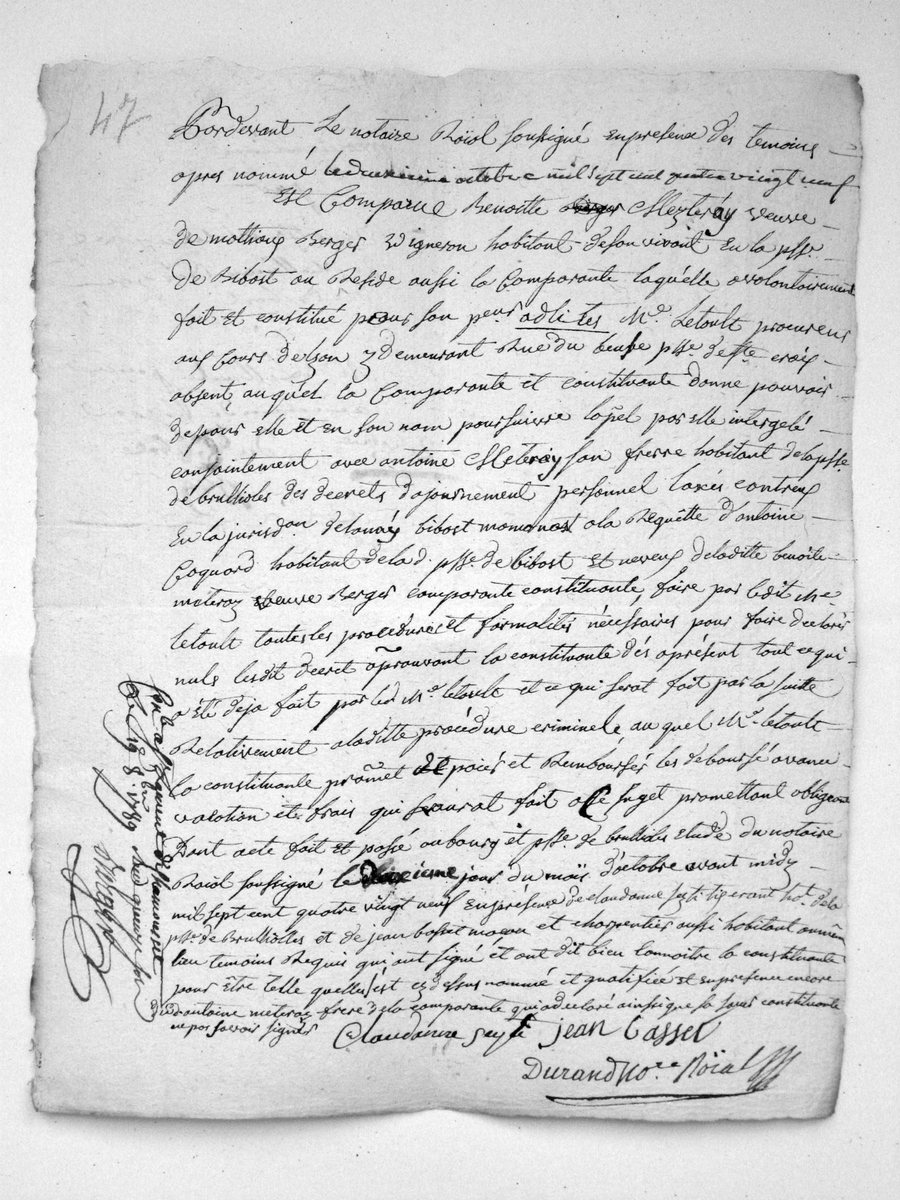 47
Pardevant Le notaire Roïal soussigné enpresence des temoins
apres nommé octobre mil sept cent quatre vingt neuf
Est Comparue Benoitte Meteray veuve
de mathieu Berger vigneron habitant desonvivant En la psse.
de Bibost ou Reside aussi la Comparante laquelle a volontairement
fait Et constitué pour son pcur. adlites Me. Letoult procureur
aux Cours delyon y demeurant Rue du beuf psse de ste croix
absent, auquel la Comparante et constituante donne pouvoir
depour elle et en son nom poursuivre lapel par elle interjeté
conjointement avec antoine Meteray son frerre habitant delapsse
de brullioles des decrets dajournement personnel laxés contreux
En la jurisdon. delouräy bibost ala Requêtte d'antoine
Coquard habitant delad. psse. de bibost Et neveux deladitte benoite
meteray veuve Berger comparante constituante, faire par ledit Me
letoult touttes les procédures et formalités nécessaires pour faire déclarer
nuls lesdit decret aprouvant la constituante dés aprésent tout cequi
a été deja fait par led Me. letoult et ce qui serat fait par la suitte
Relativement aladitte procédure criminele au quel Me. letoult
la constituante promet de païer et Rembourser les deboursé avance
vacation et frais qui saurat fait a Ce sujet promettant obligeant
Dont acte fait Et passé aubourg et psse. de brullioles Etude du notaire
Roïal soussigné le jour du mois d'octobre avant midy
mil sept cent quatre vingt neuf Enprésence declaudanne tisserant ht. dela
psse. de Brulliolles et de jean bosset macon et charpentier aussi habitant aumême
lieu temoins Requis qui ont signé et ont dit bien connoitre la constituante
pour être telle quellest cy dessus nommé et qualifiée et enpresence encore
dud antoine meteray frere dela comparante qui a declaré ainssi que sa sœur constituante
ne pas savoir signer
jean Casset
Durand No.re Roïal
le 19 8.bre 1789 Recu quinze sols